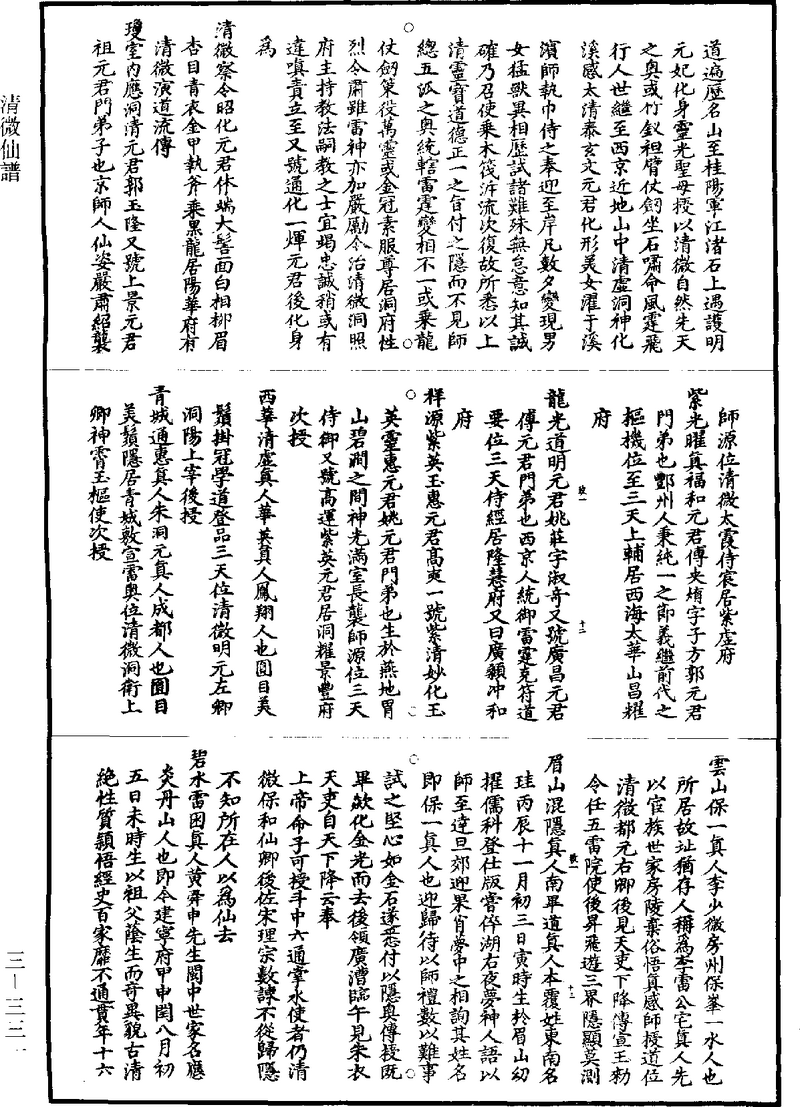 清微仙譜
道遍歷名山至桂陽軍江渚石上遇護明
元妃化身靈光聖母授以清微自然先天
之奧或竹釵袒臂仗劒坐石嘯命風霆飛
行人世繼至西京近地山中清虛洞神化
溪感太清泰玄文元君化形美女濯于溪
濱師執巾侍之奉迎至岸凡數夕變現男
女猛獸異相歷試諸難殊無怠意知其誠
確乃召使乘木筏泝流次復故所悉以上
清靈寶道德正一之旨付之隱而不見師
總五派之奧統轄雷霆變相不一或乘龍
仗劒策役萬靈或金冠素服尊居洞府性
烈令肅雖雷神亦加嚴勵今治清微洞照
府主持教法嗣教之士宜竭忠誠稍或有
違嗔責立至又號通化一煇元君後化身
為
清微察令昭化元君休端大髻面白相柳眉
杏目青衣金甲執斧乘黑龍居陽華府有
清微演道流傳
瓊室內應洞清元君郭玉隆又號上景元君
祖元君門弟子也京師人仙姿嚴肅紹襲
師源位清微太霞侍宸居紫虛府
紫光曜真福和元君傅央焴字子方郭元君
門弟也酆州人秉純一之節義繼前代之
樞機位至三天上輔居西海太華山昌耀
府
龍光道明元君姚莊字淑奇又號廣昌元君
傅元君門弟也西京人統御雷霆克符道
要位三天侍經居隆慧府又曰廣額冲和
府
祥源紫英玉惠元君高奭一號紫清妙化玉
英靈惠元君姚元君門弟也生於燕地胃
山碧澗之間神光滿室長襲師源位三天
侍御又號高運紫英元君居洞耀景豐府
次授
西華清虛真人華英真人鳳翔人也圓目美
鬚掛冠學道登品三天位清微明元左卿
洞陽上宰後授
青城通惠真人朱洞元真人成都人也圓目
美鬚隱居青城敷宣雷奧位清微洞衛上
卿神霄玉樞使次授
雲山保一真人李少微房州保峯一水人也
所居故址猶存人稱為李雷公宅真人先
以官族世家房陵棄俗悟真感師授道位
清微都元右卿後見天吏下降傳宣玉勑
令任五雷院使後昇飛遊三界隱顯莫測
眉山混隱真人南畢道真人本覆姓東南名
珪丙辰十一月初三日寅時生於眉山幼
擢儒科登仕版嘗倅湖右夜夢神人語以
師至達旦郊迎果肖夢中之相詢其姓名
即保一真人也迎歸待以師禮數以難事
試之堅心如金石遂悉付以隱奧傳授既
畢歘化金光而去後領廣漕臨午見朱衣
天吏自天下降云奉
上帝命子可授斗中六通掌水使者仍清
微保和仙卿後佐宋理宗數諫不從歸隱
不知所在人以為仙去
碧水雷困真人黃舜申先生閩中世家名應
炎丹山人也即今建寧府甲申閏八月初
五日未時生以祖父蔭生而奇異貌古清
絶性質穎悟經史百家靡不通貫年十六
三—三三一